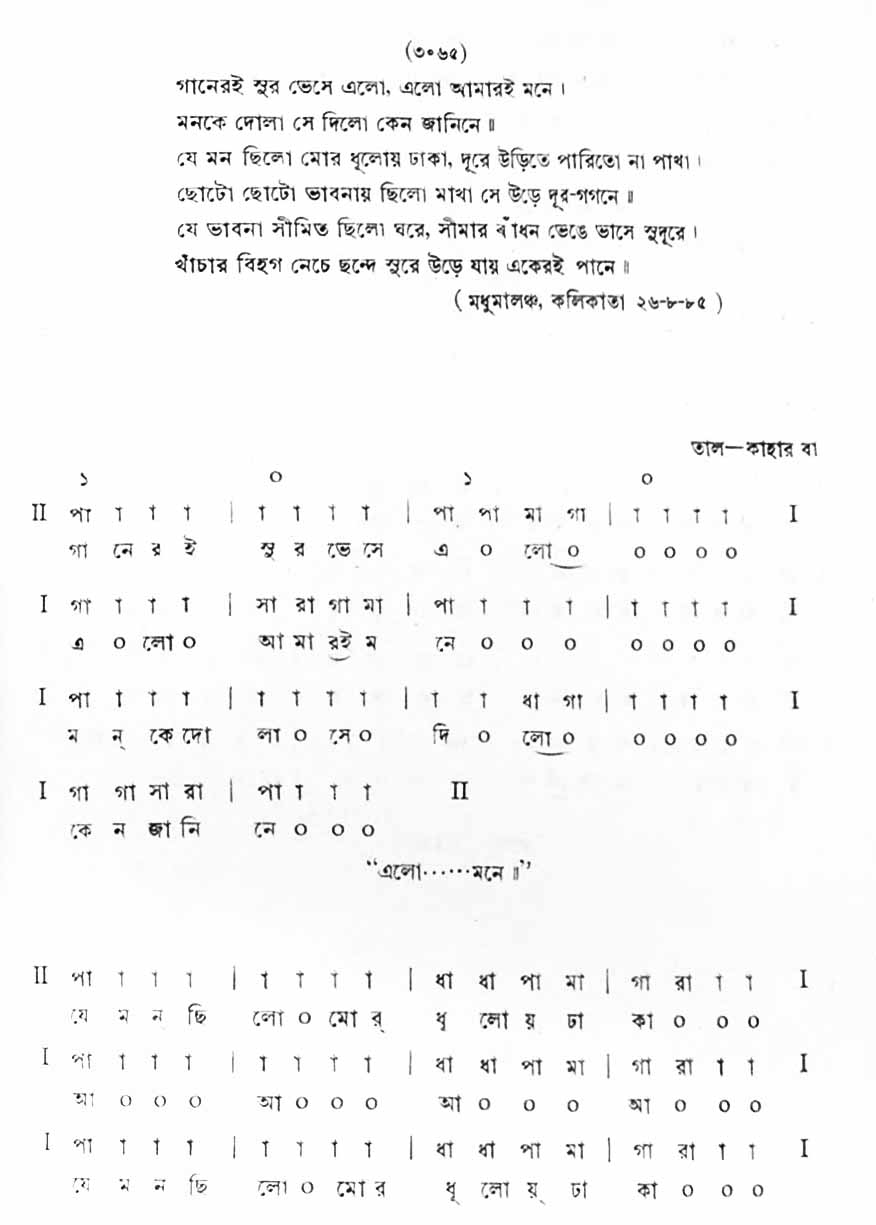 (৩০৬৫)
গানেরই সুর ভেসে এলো, এলো আমারই মনে ।
মনকে দোলা সে দিলো কেন জানিনে ॥
যে মন ছিলো মোর ধূলোয় ঢাকা, দূরে উড়িতে পারিতো না পাখা ।
ছোটো ছোটো ভাবনায় ছিলো মাখা সে উড়ে দূর-গগনে ॥
যে ভাবনা সীমিত ছিলো ঘরে, সীমার বাঁধন ভেঙে ভাসে সুদূরে ।
খাঁচার বিহগ নেচে ছন্দে সুরে উড়ে যায় একেরই পানে ॥
( মধুমালঞ্চ, কলিকাতা ২৬-৮-৮৫ )
তাল—কাহার বা
১ ০ ১ ০
II পা া া া | া া া া | পা পা মা গা | া া া া I
গা নে র ই সু র ভে সে এ ০ লো ০ ০ ০ ০ ০
I গা া া া | সা রা গা মা | পা া া া | া া া া I
এ ০ লো ০ আ মা রই ম নে ০ ০ ০ ০ ০ ০ ০
I পা া া া | া া া া | া া ধা গা | া া া া I
ম ন্ কে দো লা ০ সে ০ দি ০ লো ০ ০ ০ ০ ০
I গা গা সা রা | পা া া া II
কে ন জা নি নে ০ ০ ০
“এলো······মনে ॥”
II পা া া া | া া া া | ধা ধা পা মা | গা রা া া I
যে ম ন ছি লো ০ মো র্ ধূ লো য় ঢা কা ০ ০ ০
I পা া া া | া া া া | ধা ধা পা মা | গা রা া া I
আ ০ ০ ০ আ ০ ০ ০ আ ০ ০ ০ আ ০ ০ ০
I পা া া া | া া া া | ধা ধা পা মা | গা রা া া I
যে ম ন ছি লো ০ মো র ধূ লো য়্ ঢা কা ০ ০ ০